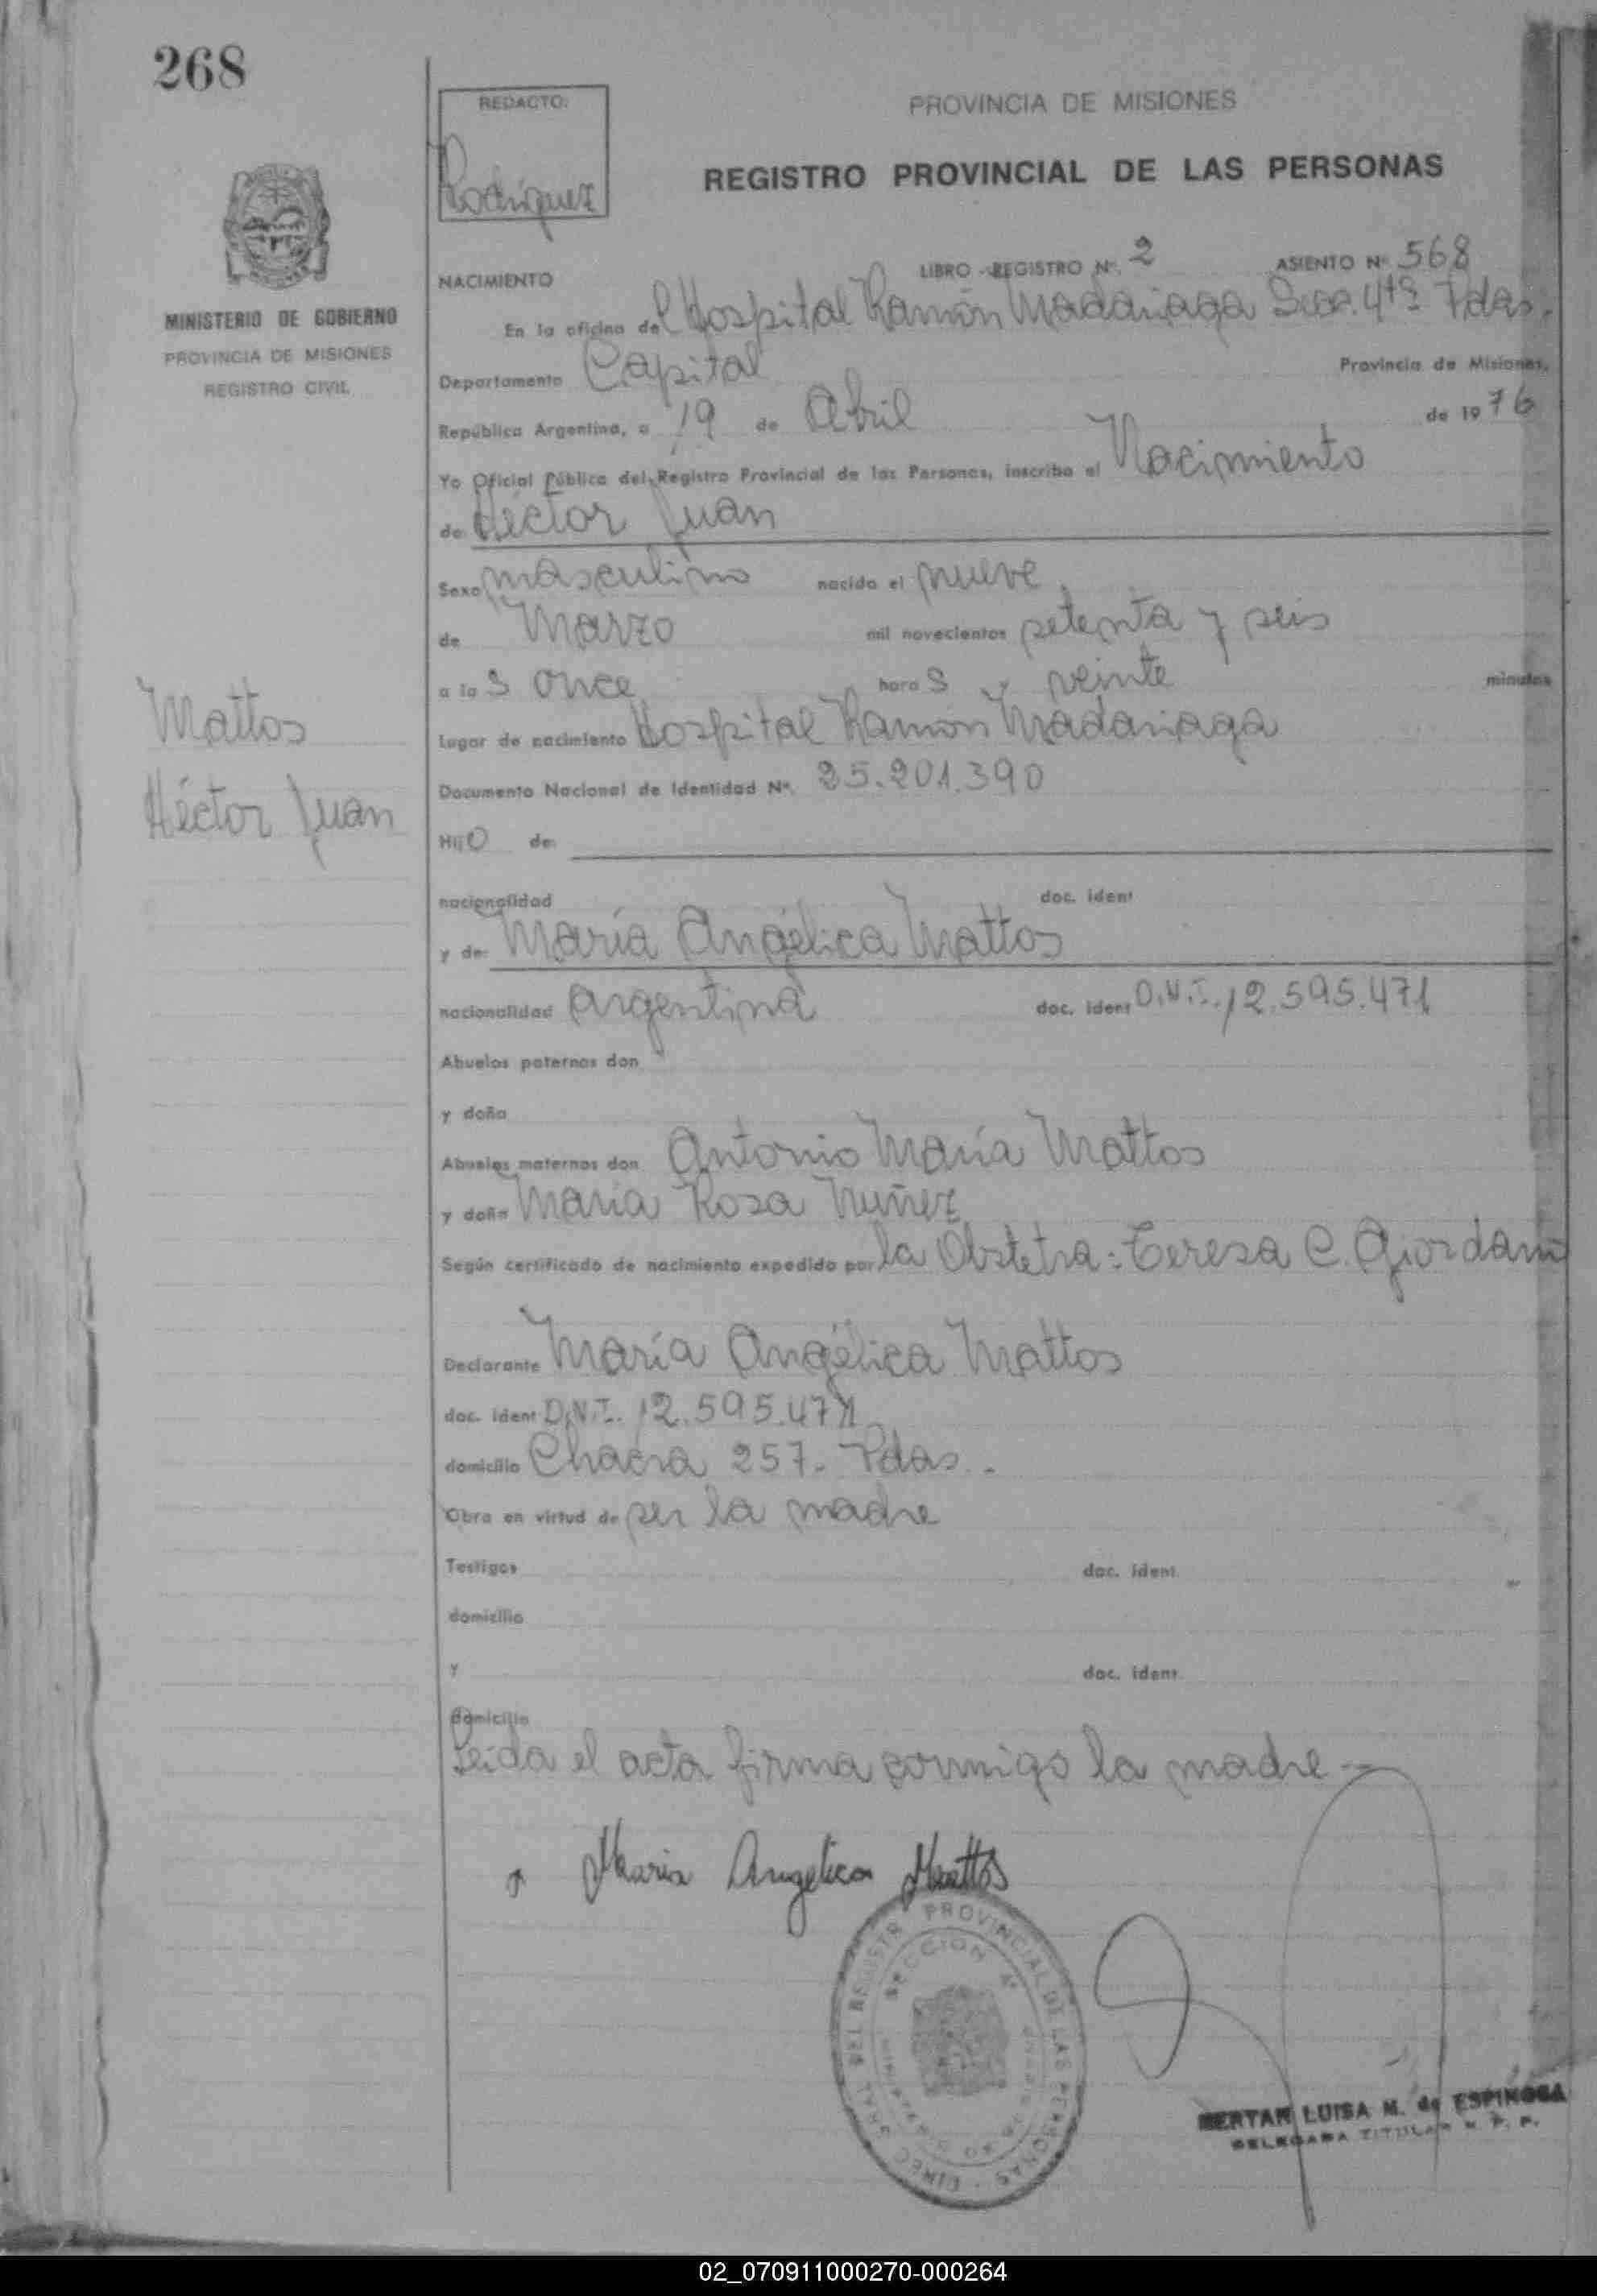 268
REDACTO:
Rodriguez
PROVINCIA DE MISIONES
REGISTRO PROVINCIAL DE LAS PERSONAS
MINISTERIO DE GOBIERNO
PROVINCIA DE MISIONES
REGISTRO CIVIL
NACIMIENTO
LIBRO - REGISTRO Nº. 2 ASIENTO Nº 568
En la oficina del Hospital Ramón Madariaga Secc. 4ta Pdas.
Departamento Capital Provincia de Misiones,
República Argentina, a 19 de Abril de 1976
Yo Oficial Público del Registro Provincial de las Personas, inscribo el Nacimiento
de Héctor Juan
Sexo masculino nacido el nueve
de Marzo mil novecientos setenta y seis
a las once horas y veinte minutos
Mattos
Héctor Juan
Lugar de nacimiento Hospital Ramón Madariaga
Documento Nacional de Identidad Nº. 25.201.390
Hijo de:
nacionalidad doc. ident
y de: María Angélica Mattos
nacionalidad argentina doc. ident D.N.I. 12.595.471
Abuelos paternos don
y doña
Abuelos maternos don Antonio María Mattos
y doña María Rosa Nuñez
Según certificado de nacimiento expedido por la Obstetra: Teresa C. Giordani
Declarante María Angélica Mattos
doc. ident D.N.I. 12.595.471
domicilio Chacra 257. Pdas.-
Obra en virtud de ser la madre
Testigos doc. ident.
domicilio
y doc. ident.
domicilio
Leida el acta firma conmigo la madre.-
Maria Angelica Mattos
DEL REGISTR PROVINCIAL DE LAS PERSONAS
SECCION 4ª
LUISA M. de ESPINOSA
DELEGADA TITULAR R. P. P.
02_070911000270-000264